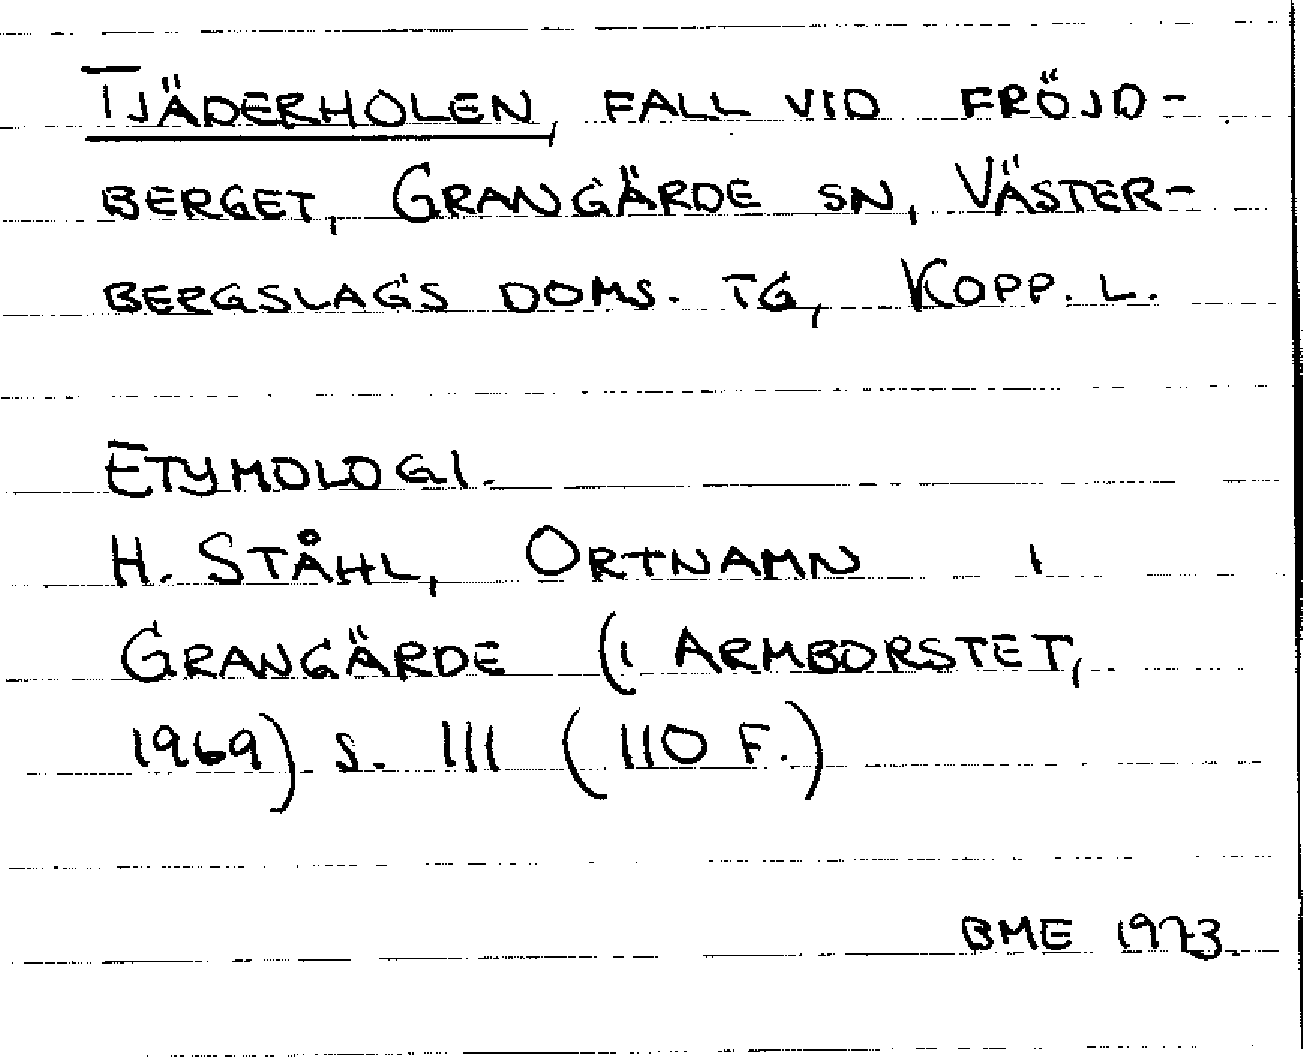 TJÄDERHOLEN, FALL VID FRÖJD-
BERGET, GRANGÄRDE SN, VÄSTER-
BERGSLAGS DOMS. TG, KOPP. L.
ETYMOLOGI.
H. STÅHL, ORTNAMN I
GRANGÄRDE (I ARMBORSTET,
1969) S. 111 (110 F.)
BME 1973.